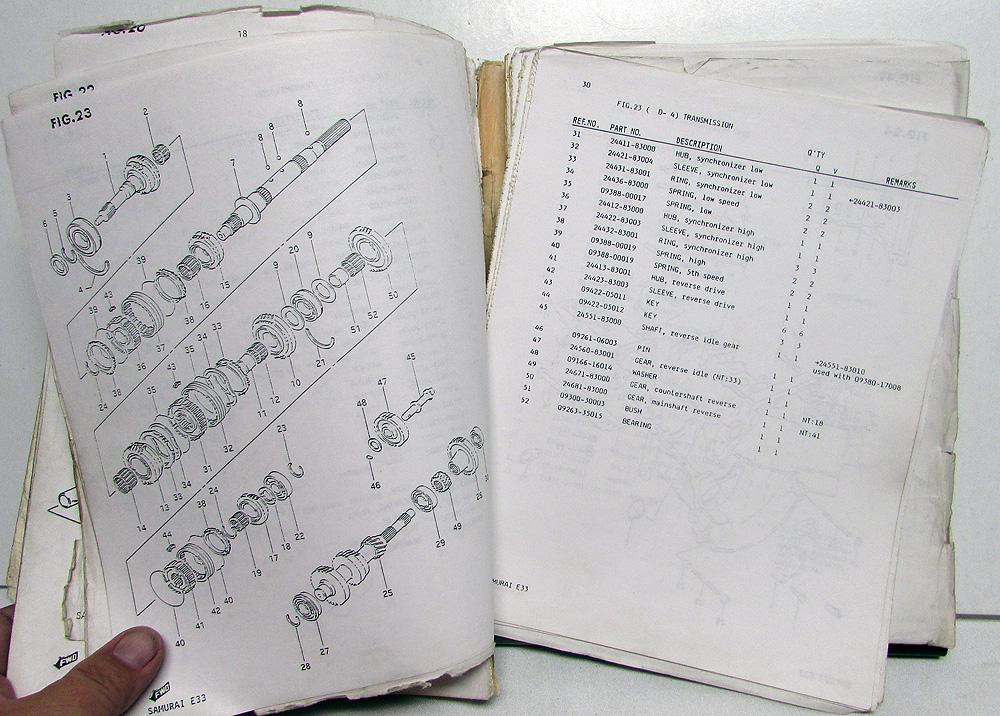 18
FIG.23
2
1
8
8
8
7
3
5
6
4
39
43
16
15
9
20
9
39
36
37
38
24
35
43
35
34
33
50
52
51
21
10
12
11
45
47
48
46
32
31
34
33
13
14
23
24
38
44
22
18
17
19
40
42
41
40
29
49
26
25
27
28
FWD
FWD
SAMURAI E33
30
FIG.23 ( D- 4) TRANSMISSION
REF.NO. PART NO. DESCRIPTION Q'TY
Q V REMARKS
31 24411-83000 HUB, synchronizer low 1 1
32 24421-83004 SLEEVE, synchronizer low 1 1 ←24421-83003
33 24431-83001 RING, synchronizer low 2 2
34 24436-83000 SPRING, low speed 2 2
35 09388-00017 SPRING, low 2 2
36 24412-83000 HUB, synchronizer high 1 1
37 24422-83003 SLEEVE, synchronizer high 1 1
38 24432-83001 RING, synchronizer high 3 3
39 09388-00019 SPRING, high 2 2
40 09388-00019 SPRING, 5th speed 2 2
41 24413-83001 HUB, reverse drive 1 1
42 24423-83003 SLEEVE, reverse drive 1 1
43 09422-05011 KEY 6 6
44 09422-05012 KEY 3 3
45 24551-83000 SHAFT, reverse idle gear 1 1 →24551-83010
used with 09380-17008
46 09261-06003 PIN 1 1
47 24560-83001 GEAR, reverse idle (NT:33) 1 1
48 09166-16014 WASHER 1 1
49 24671-83000 GEAR, countershaft reverse 1 1 NT:18
50 24681-83000 GEAR, mainshaft reverse 1 1 NT:41
51 09300-30003 BUSH 1 1
52 09263-35015 BEARING 1 1
MURAI E33